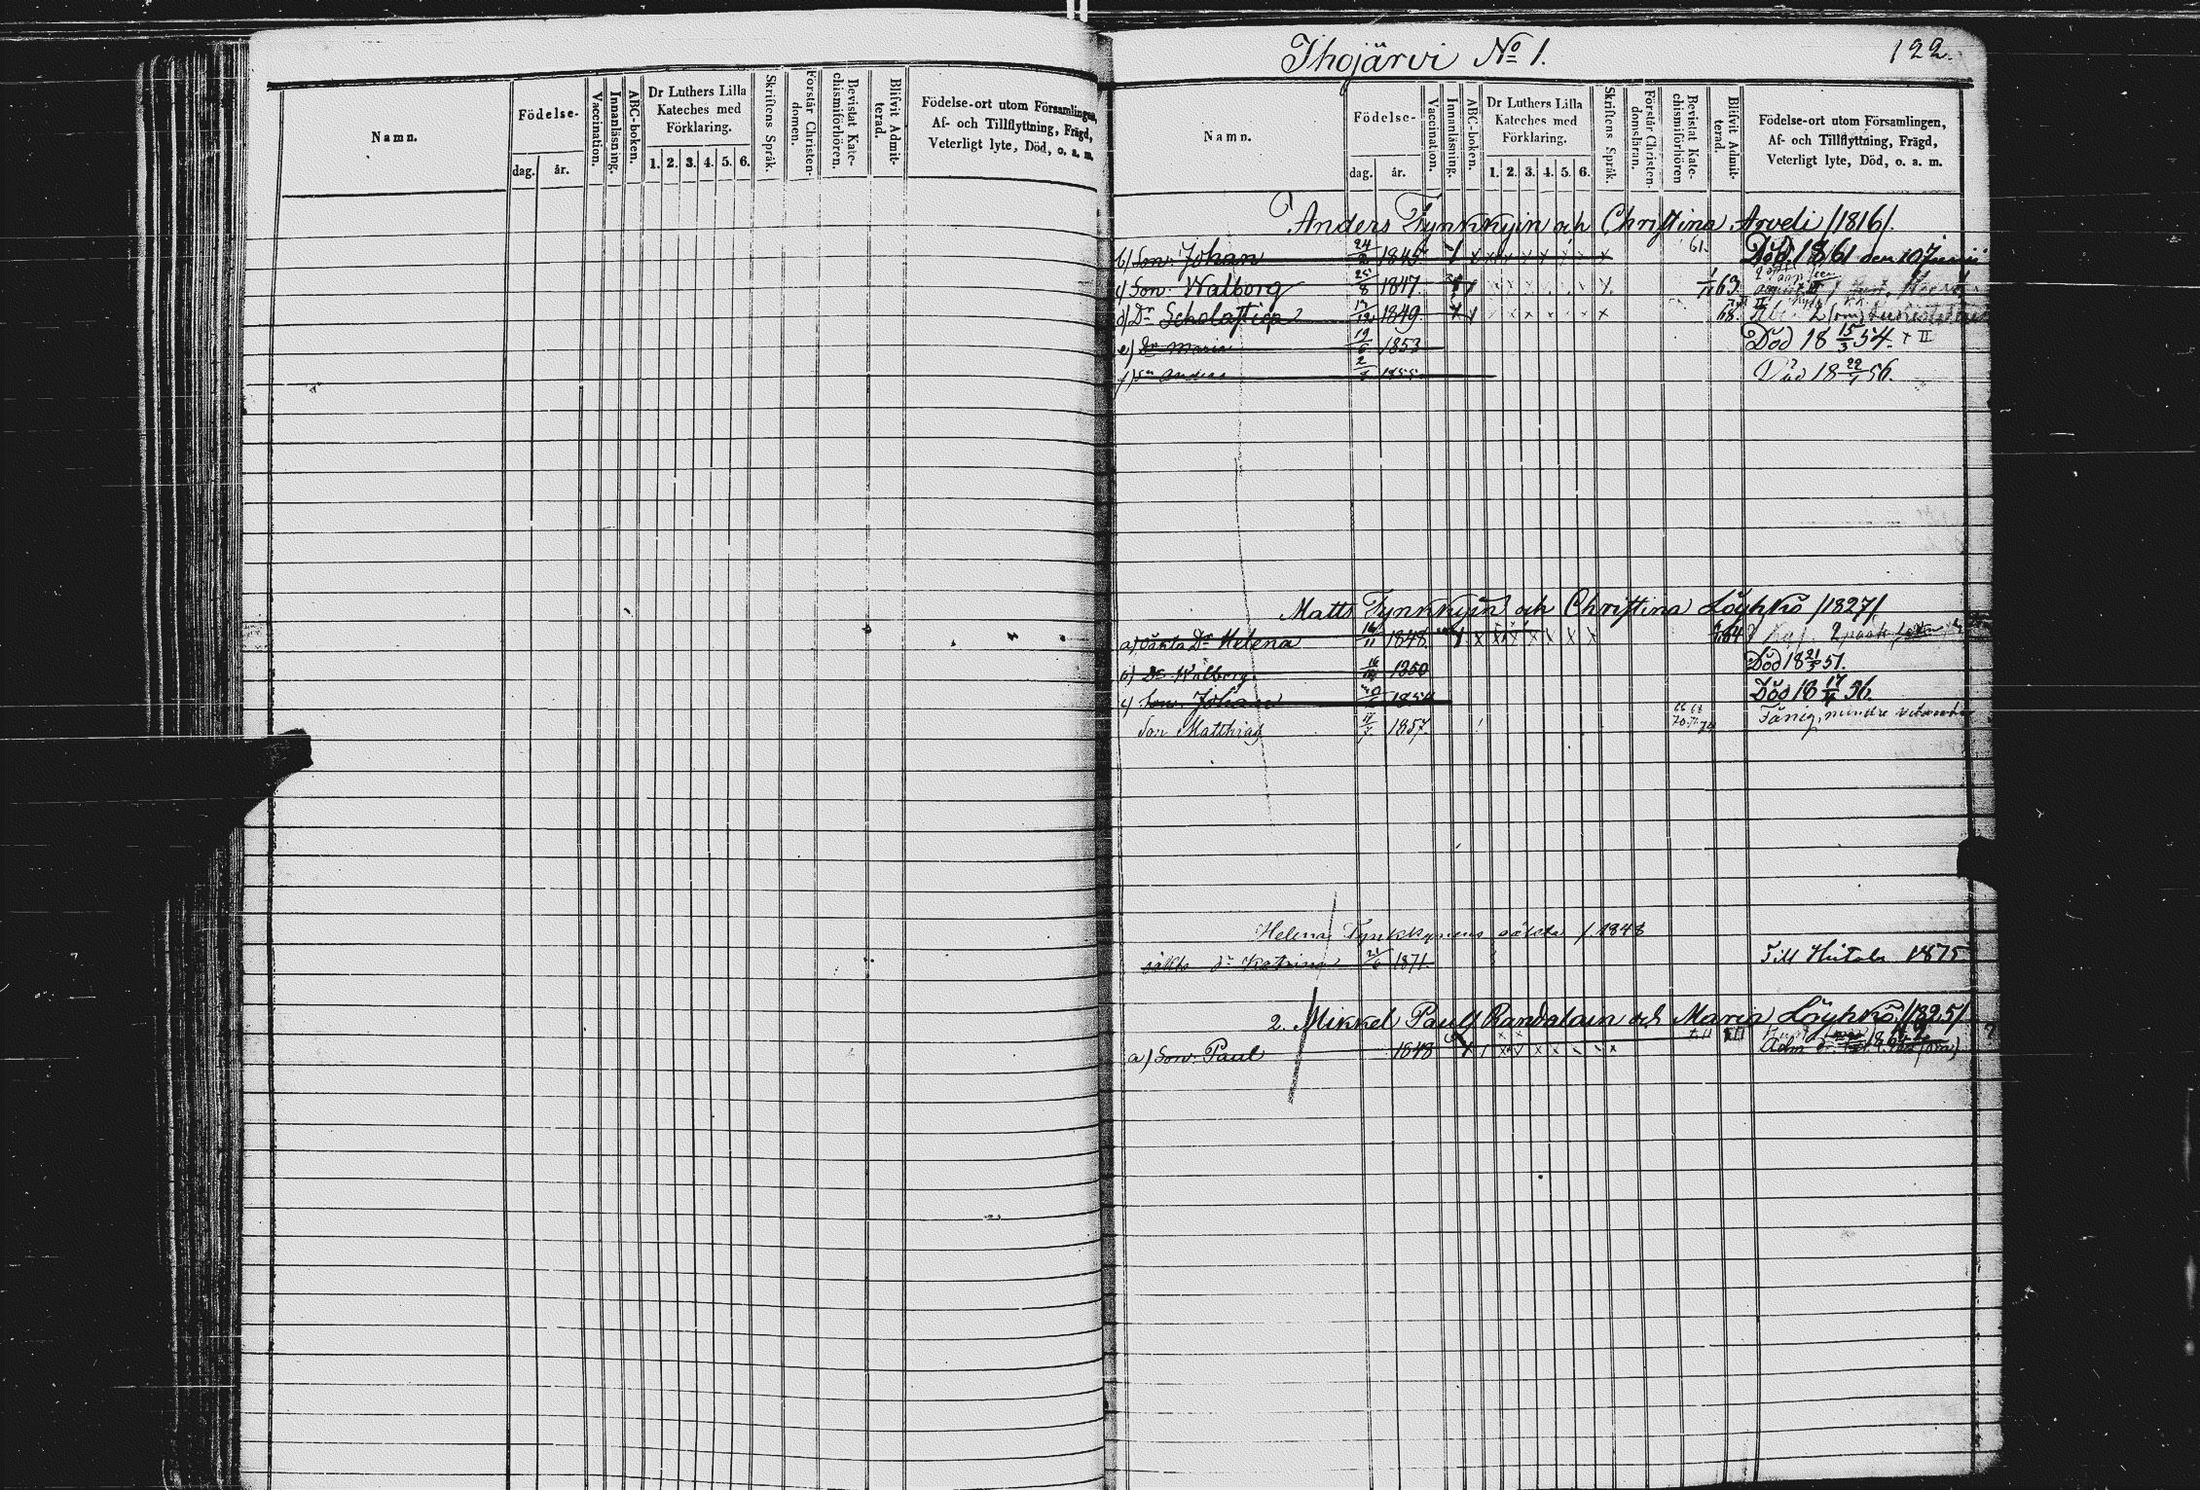 Namn.
Födelse-
dag.
år.
Vaccination.
Innanläsning.
ABC-boken.
Dr Luthers Lilla
Kateches med
Förklaring.
1. 2. 3. 4. 5. 6.
Skriftens Språk.
Förstår Christen-
domen.
Bevistat Kate-
chismiförhören.
Blifvit Admit-
terad.
Födelse-ort utom Församlingen,
Af- och Tillflyttning, Frägd,
Veterligt lyte, Död, o. a. m.
Ihojärvi No 1.
122.
Namn.
Födelse-
dag.
år.
Vaccination.
Innanläsning.
ABC-boken.
Dr Luthers Lilla
Kateches med
Förklaring.
1. 2. 3. 4. 5. 6.
Skriftens Språk.
Förstår Christen-
domsläran.
Bevistat Kate-
chismiförhören
Blifvit Admit-
terad.
Födelse-ort utom Församlingen,
Af- och Tillflyttning, Frägd,
Veterligt lyte, Död, o. a. m.
Anders Tynkkyin och Christina Arveli /1816/.
b) Son Johan 24/2 1845 61. Död. 1861 den 10 Junii
c) Son Walborg 25/8 1847 63
d) Dr Scholastica 1849 68.
e) Dr Maria 19/6 1853 Död 18 15/3 54.
f) Sn Anders 1855 Död 18 22/4 56.
Matts Tynkkyin och Christina Löyhkö /1827/
a) oäkta Dr Helena 16/11 1848 64
b) Dr Walborg 1850 Död 18 21/5 51.
c) Son Johan 1854 Död 18 56.
Son Matthias 1857 Fånig, mindre
Helena Tynkkynens oäkta /1848
oäkta dr Katrina 21/6 1871. Till Hiitola 1875
2. Mikkel Paulf Randalain och Maria Löyhkö /1825/
a) Son Paul 1848 Adm